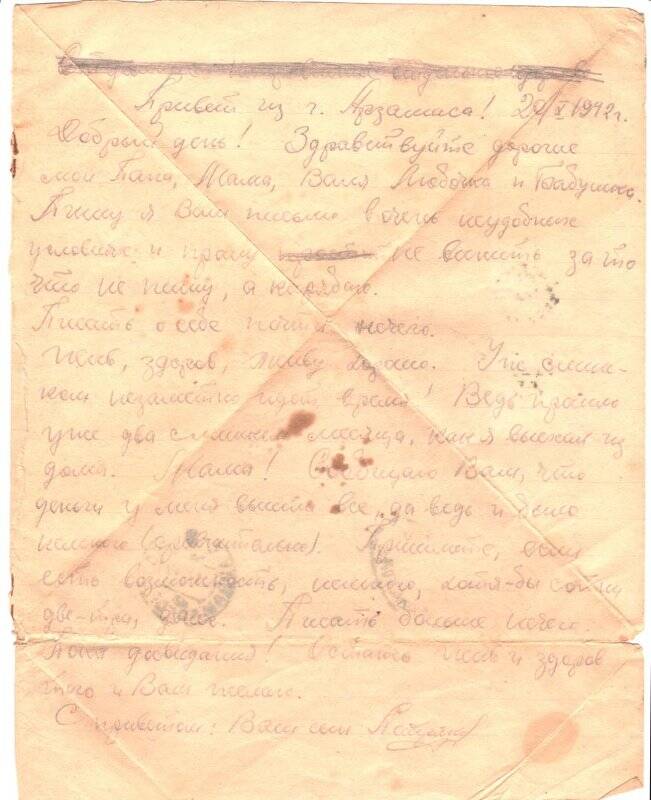 Привет из г. Арзамаса! 20/X 1942г.
Добрый день! Здравствуйте дорогие
мои Папа, Мама, Валя Любочка и Бабушка.
Пишу я Вам письмо в очень неудобных
условиях и прошу не винить за то
что не пишу, а карябаю.
Писать о себе почти нечего.
Жив, здоров, живу хорошо. Уж слиш-
ком незаметно идёт время! Ведь прошло
уже два с лишним месяца, как я выехал из
дома. Мама! Сообщаю Вам, что
деньги у меня вышли все, да ведь и было
немного (сравнительно). Пришлите, если
есть возможность, немного, хотя-бы сотни
две-три, даже. Писать больше нечего.
Пока досвидания! Остаюсь жив и здоров
того и Вам желаю.
С приветом: Ваш сын